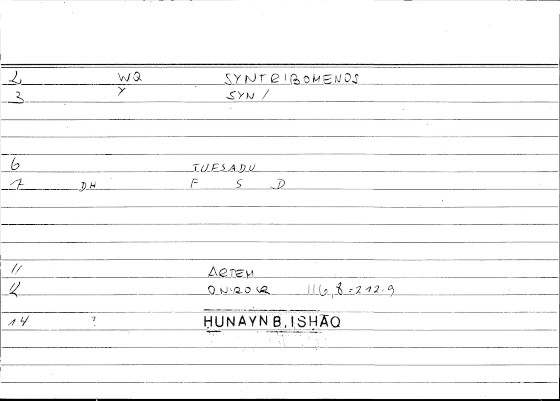 2 WQ SYNTRIBOMENOS
3 Y SYN/
6 TUFSADU
7 DH F S D
11 ARTEM
12 ONIROCR 116,8=212.9
14 ? HUNAYN B. ISHĀQ